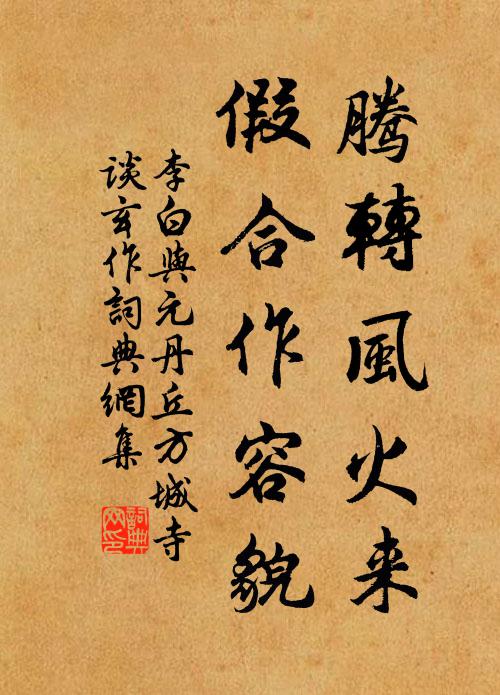 腾轉風火来
假合作容貌
李白與元丹丘方城寺
談玄作詞典網集
詞典